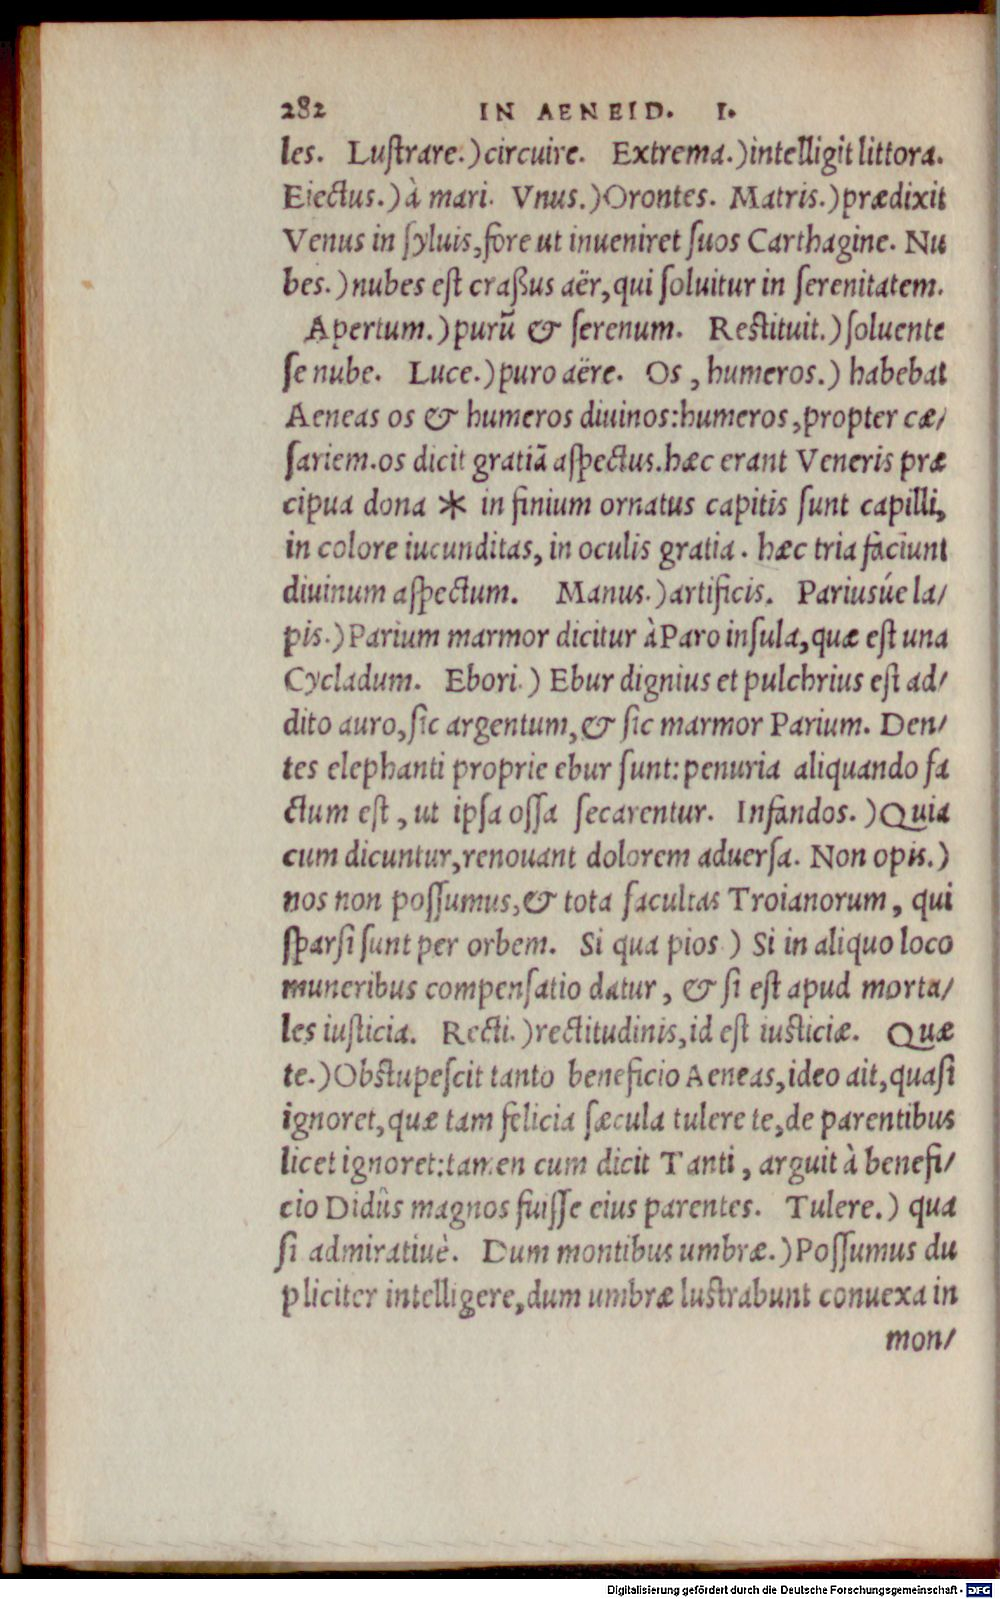 282 IN AENEID. I.
les. Luſtrare.) circuire. Extrema.) intelligit littora.
Eiectus.) à mari. Vnus.) Orontes. Matris.) prædixit
Venus in ſyluis, fore ut inueniret ſuos Carthagine. Nu
bes.) nubes eſt craßus aër, qui ſoluitur in ſerenitatem.
Apertum.) purũ & ſerenum. Reſtituit.) ſoluente
ſe nube. Luce.) puro aëre. Os, humeros.) habebat
Aeneas os & humeros diuinos: humeros, propter cæ/
ſariem. os dicit gratiã aſpectus. hæc erant Veneris præ
cipua dona * in finium ornatus capitis ſunt capilli,
in colore iucunditas, in oculis gratia. hæc tria faciunt
diuinum aſpectum. Manus.) artificis. Pariusúe la/
pis.) Parium marmor dicitur à Paro inſula, quæ eſt una
Cycladum. Ebori.) Ebur dignius et pulchrius eſt ad/
dito auro, ſic argentum, & ſic marmor Parium. Den/
tes elephanti proprie ebur ſunt: penuria aliquando fa
ctum eſt, ut ipſa oſſa ſecarentur. Infandos.) Quia
cum dicuntur, renouant dolorem aduerſa. Non opis.)
nos non poſſumus, & tota facultas Troianorum, qui
ſparſi ſunt per orbem. Si qua pios.) Si in aliquo loco
muneribus compenſatio datur, & ſi eſt apud morta/
les iuſticia. Recti.) rectitudinis, id eſt iuſticiæ. Quæ
te.) Obſtupeſcit tanto beneficio Aeneas, ideo ait, quaſi
ignoret, quæ tam felicia ſæcula tulere te, de parentibus
licet ignoret: tamen cum dicit Tanti, arguit à benefi/
cio Didûs magnos fuiſſe eius parentes. Tulere.) qua
ſi admiratiuè. Dum montibus umbræ.) Poſſumus du
pliciter intelligere, dum umbræ luſtrabunt conuexa in
mon/
Digitalisierung gefördert durch die Deutsche Forschungsgemeinschaft - DFG